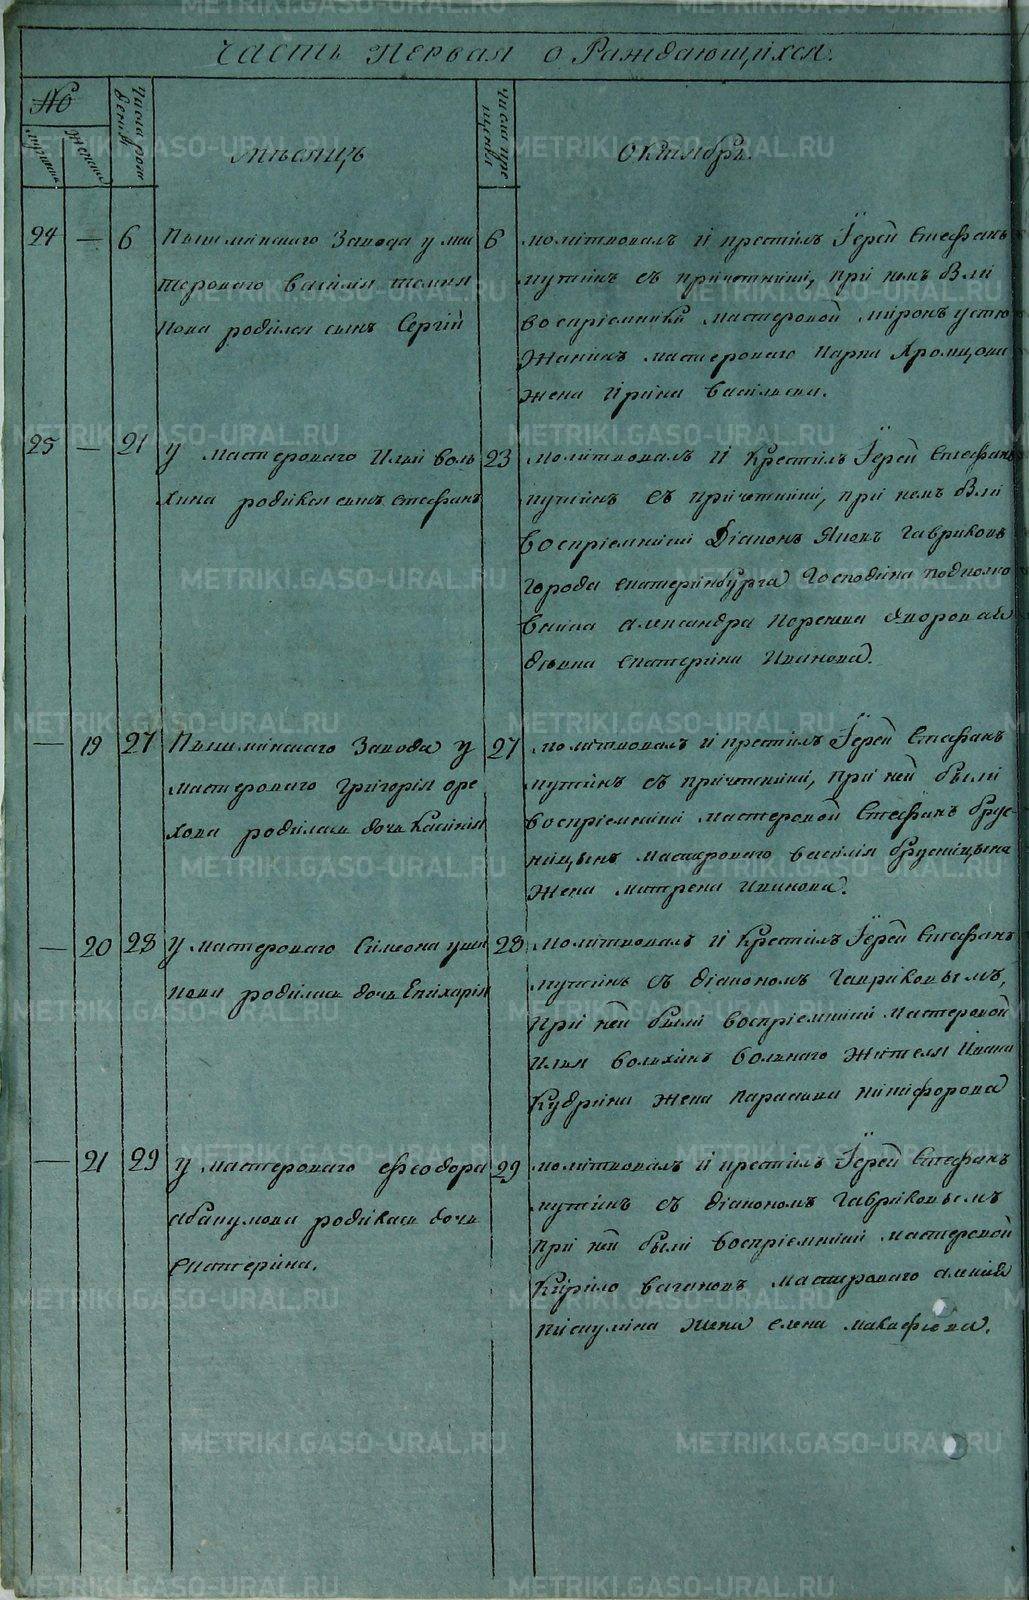 Часть Первая о Раждающихся.
№
мужеска
женска
Числа рож
дения
Мѣсяцъ
Числа кре
щения
Октябрь.
24 — 6 Пышминскаго Завода у мас
тероваго Василия
нова родился сынъ Сергiй
6 молитвовалъ и крестилъ Iерей Стефанъ
путинъ съ причетники, при немъ были
воспрiемники мастеровой миронъ устю
жанинъ мастероваго карпа Хромцова
жена Ирина Васильева.
25 — 21 у мастероваго Ильи воль
хина родился сынъ стефанъ
23 молитвовалъ и Крестилъ Iерей Стефанъ
путинъ съ причетники, при немъ были
воспрiемники Дiаконъ Яковъ Гавриковъ
города екатеринбурга Господина подполко
вника александра дворовая
дѣвка екатерина Иванова.
— 19 27 Пышминскаго Завода у
мастероваго Григорiя оре
хова родилась дочь Капiтолина
27 молитвовалъ и крестилъ Iерей Стефанъ
путинъ съ причетники, при ней были
воспрiемники мастеровой Стефанъ брус-
ницынъ мастероваго василiя брусницына
жена матрена Иванова.
— 20 28 у мастероваго Симеона уша
кова родилась дочь Епихарiя
28 молитвовалъ и Крестилъ Iерей Стефанъ
путинъ съ дiакономъ Гавриковымъ,
При ней были воспрiемники мастеровой
Илья вольхинъ вольнаго жителя Ивана
Кудрина жена параскева никифорова
— 21 29 у мастероваго ѳеодора
абакумова родилась дочь
екатерина.
29 молитвовалъ и крестилъ Iерей Стефанъ
путинъ съ дiакономъ Гавриковымъ
при ней были воспрiемники мастеровой
Кирило вагановъ мастероваго
пискулина жена елена
METRIKI.GASO-URAL.RU